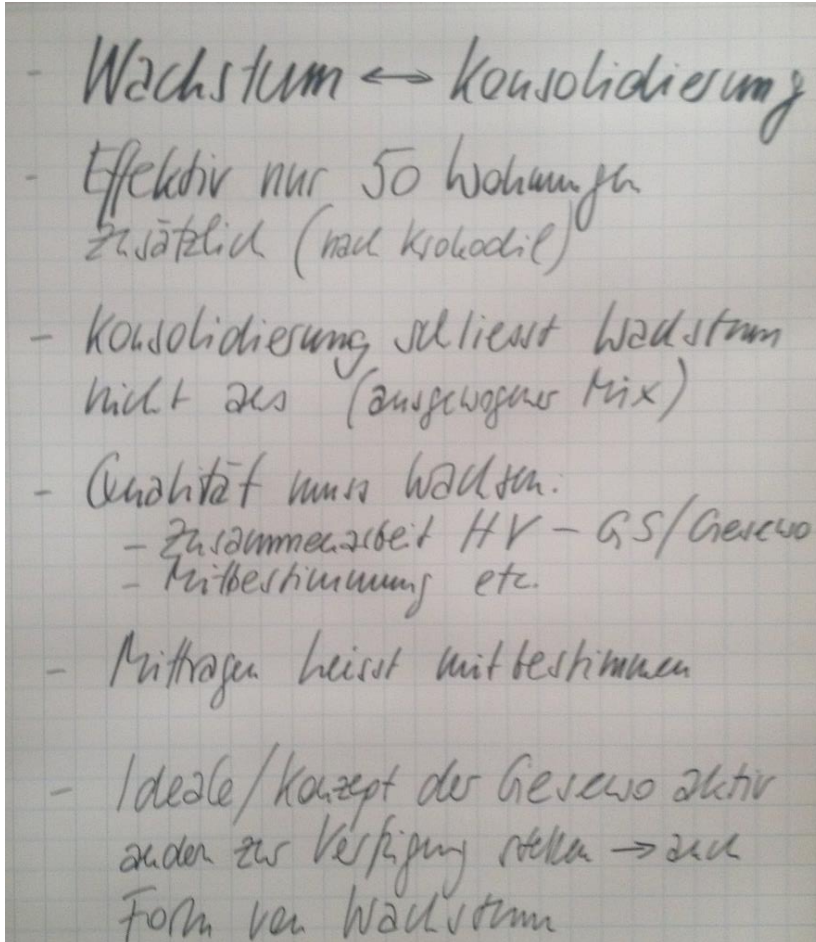 - Wachstum ↔ Konsolidierung
- Effektiv nur 50 Wohnungen
zusätzlich (nach Krokodil)
- Konsolidierung schliesst Wachstum
nicht aus (ausgewogener Mix)
- Qualität muss wachsen:
- Zusammenarbeit HV - GS/Gesewo
- Mitbestimmung etc.
- Mittragen heisst mitbestimmen
- Ideale/Konzept der Gesewo aktiv
anden zur Verfügung stellen → auch
Form von Wachstum